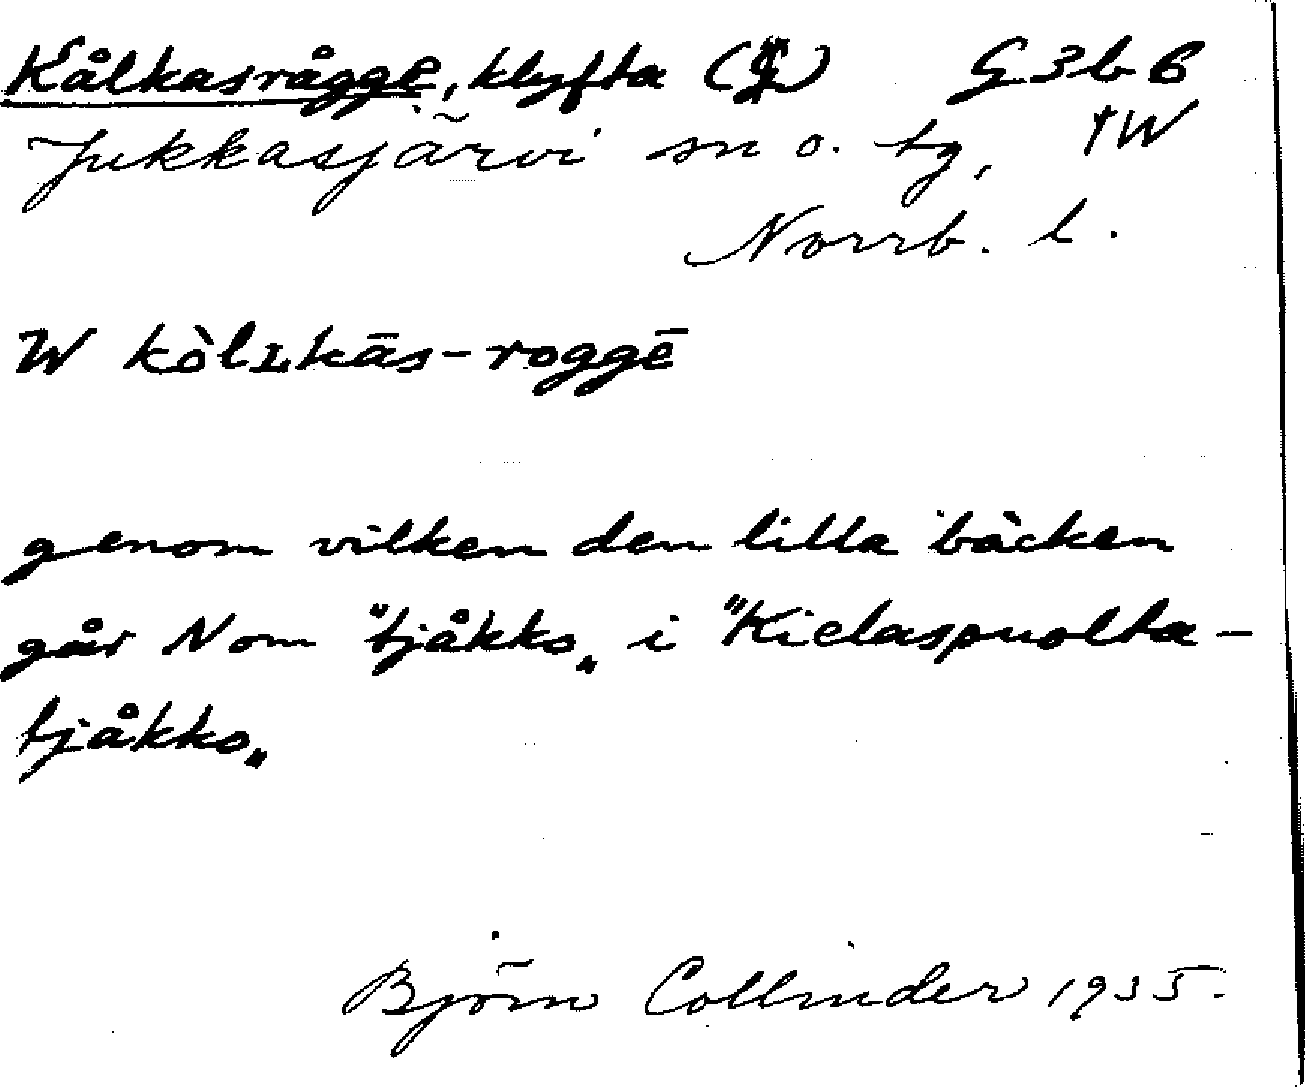 Kålkasrågge, klyfta (L) G3b6
Jukkasjärvi sn o. tg, †W
Norrb. l.
W kòlɪkās-roggē
genom vilken den lilla bäcken
går N om "tjåkko„ i "Kielaspuolta-
tjåkko„
Björn Collinder 1935.